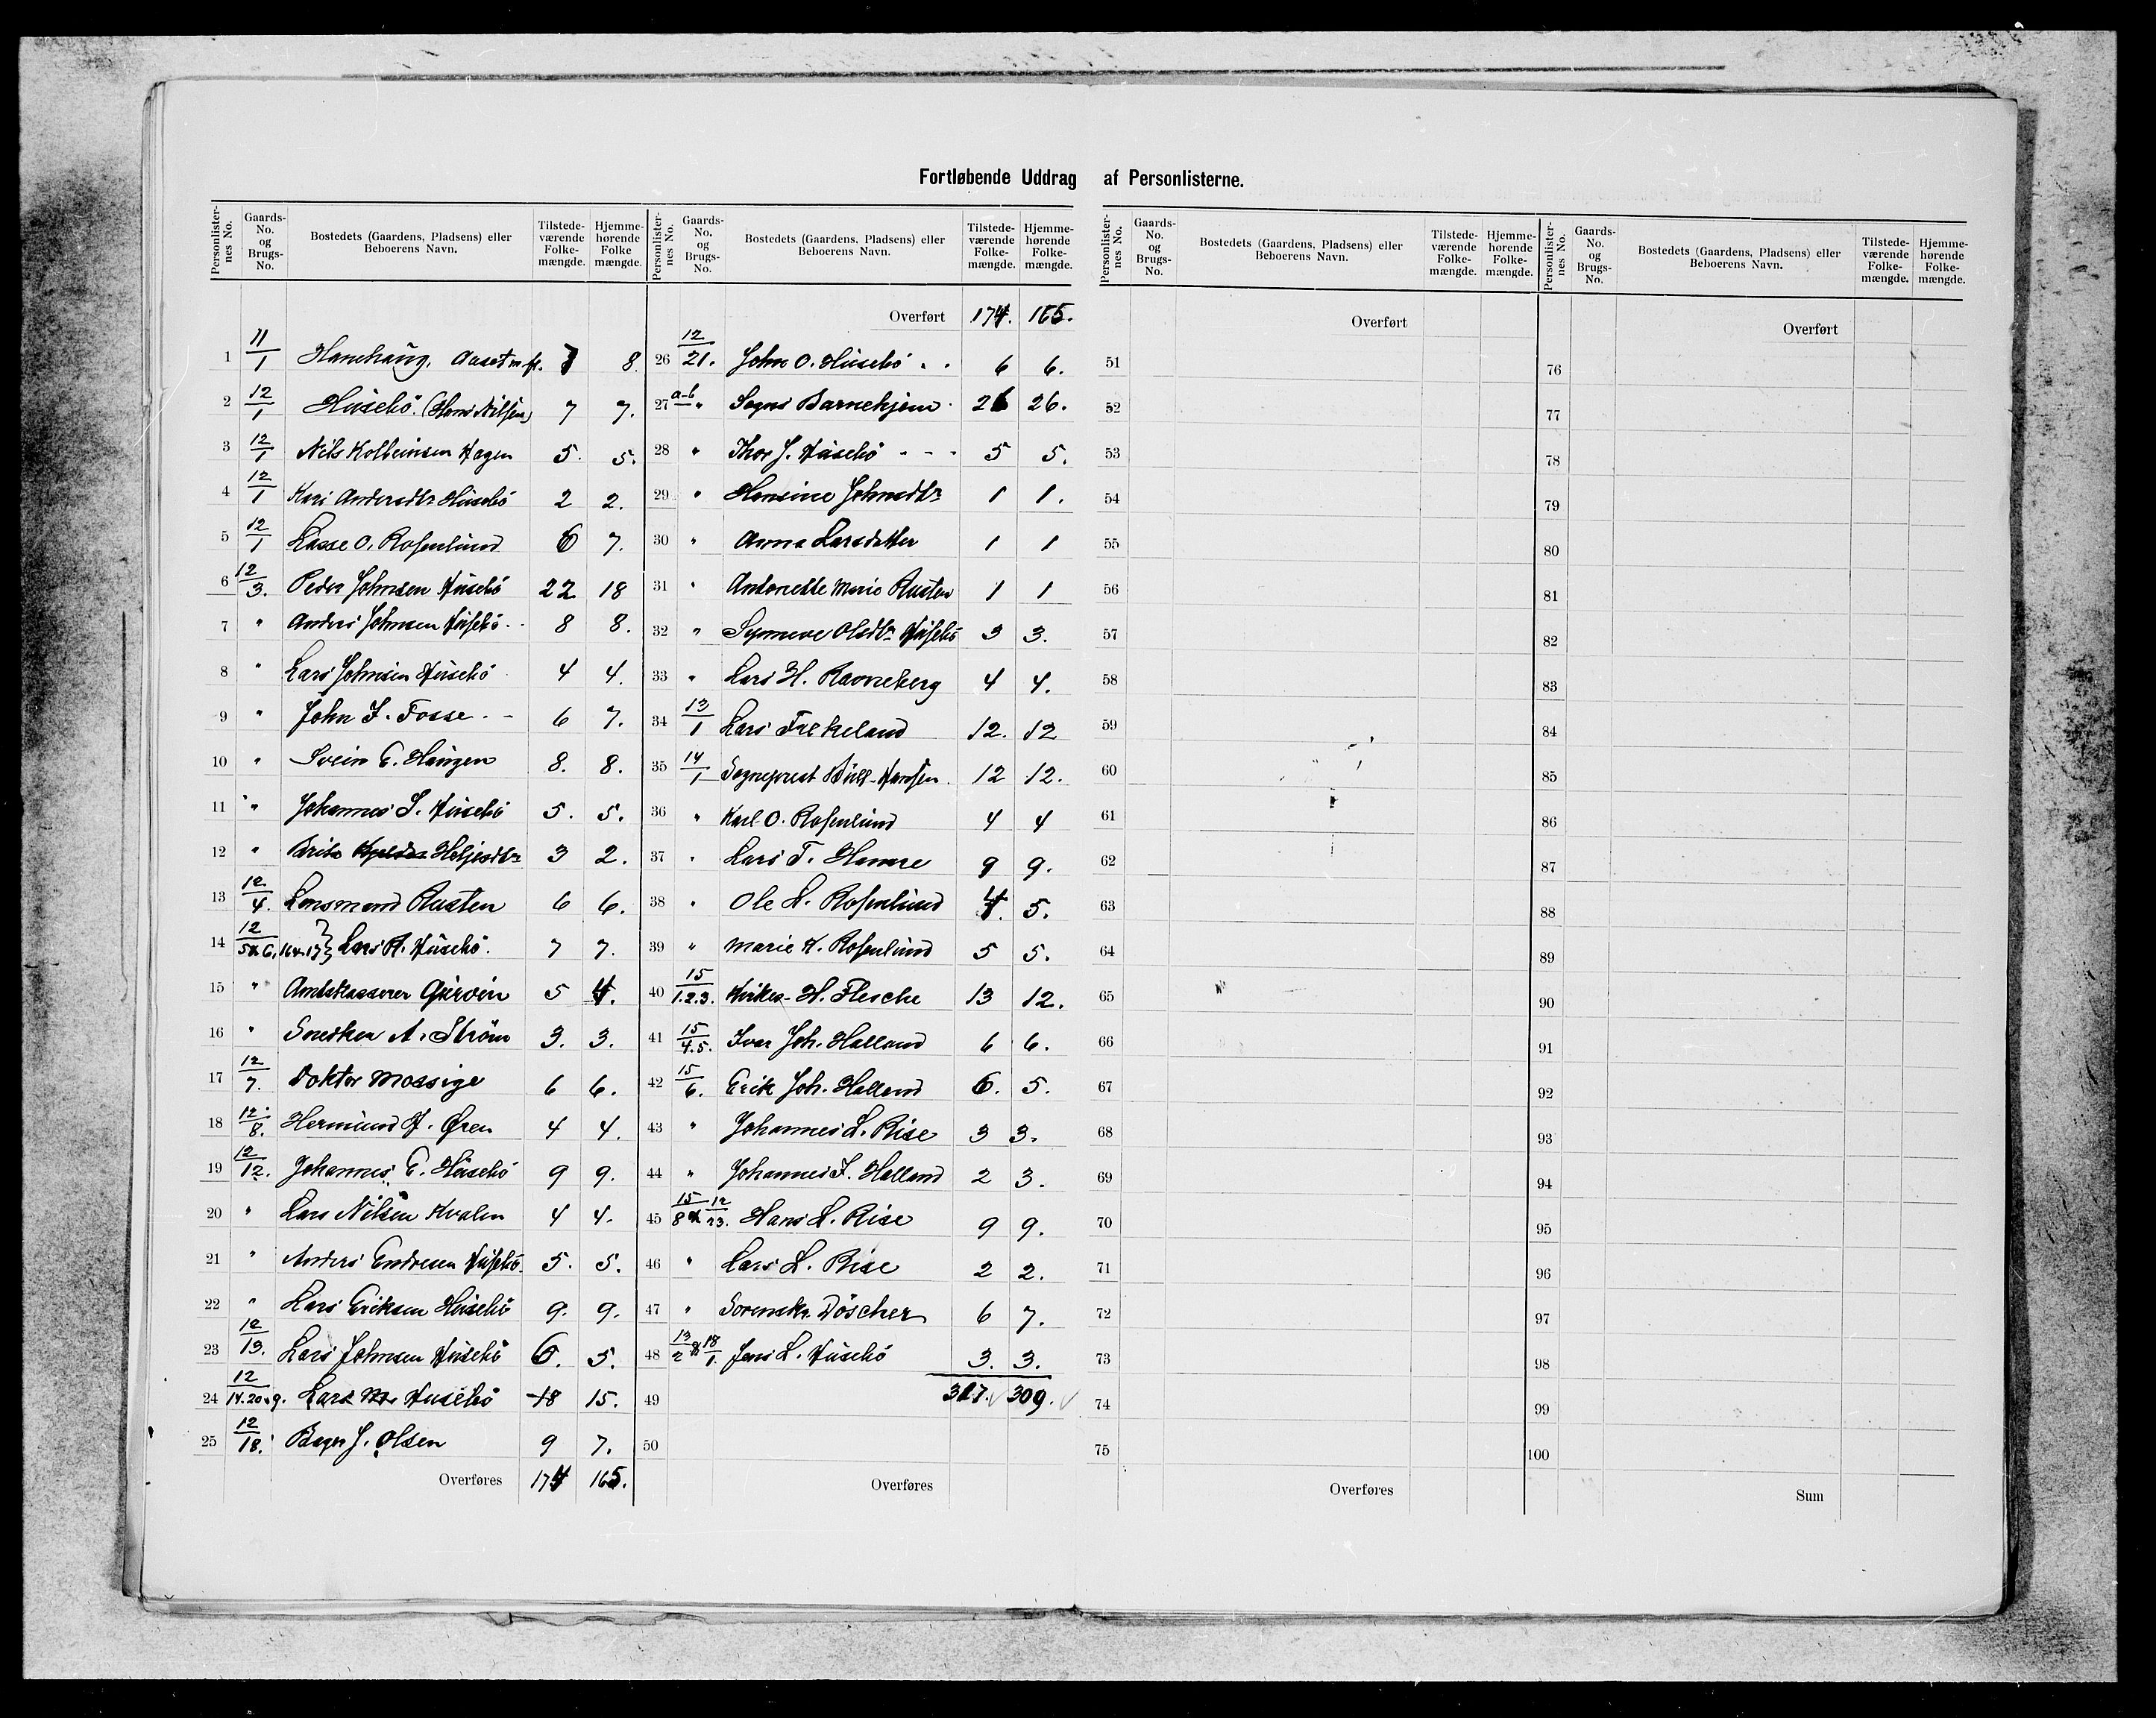 Fortløbende Uddrag af Personlisterne.
Personlisternes No. | Gaards-No. og Brugs-No. | Bostedets (Gaardens, Pladsens) eller Beboerens Navn. | Tilstedeværende Folkemængde. | Hjemmehørende Folkemængde.
1 11/1 Hanehaug, 8
2 12/1 Husebö. (Hans Nilsen) 7 7.
3 12/1 Nils Kolbeinsen Hagen 5. 5.
4 12/1 Kari Andersdtr Husebö 2 2.
5 12/1 Lasse O. Rosenlund 6 7.
6 12/3. Peder Johnsen Husebö 22 18
7 " Anders Johnsen Husebö 8 8.
8 " Lars Johnsen Husebö 4 4.
9 " John J. Fosse 6 7.
10 " Svein E. Haugen 8. 8.
11 " Johannes S. Husebö 5. 5.
12 " Brite Heljesdtr 3 2.
13 12/4. Lensmand Rusten 6 6.
14 12/5&6, 16&17 Lars A. Husebö. 7 7.
15 " Amtskasserer Gjervin 5 4.
16 " Snedker A. Ström 3. 3.
17 12/7. Doktor Mossige 6 6.
18 12/8. Hermund P. Øren 4 4.
19 12/12. Johannes E. Husebö 9 9.
20 " Lars Nilsen Kvalen 4 4.
21 " Anders Endresen Husebö 5. 5.
22 " Lars Eriksen Husebö 9. 9.
23 12/13. Lars Johnsen Husebö 6. 5.
24 12/14.20&9. Lars M. Husebö 18 15.
25 12/18. Bager J. Olsen 9 7.
Overføres 174 165.
Overført 174. 165.
26 12/21. John O. Husebö 6 6.
27 a-b " Sogns Barnehjem 26 26.
28 " Thor J. Husebö 5 5.
29 " Hansine Johnsdtr 1 1.
30 " Anna Larsdatter 1 1
31 " Antonette Marie Rusten 1 1
32 " Synneve Olsdtr Husebö 3 3.
33 " Lars H. Ravneberg 4 4.
34 13/1 Lars Frekeland 12. 12
35 14/1 Sogneprest Bull-Hansen 12 12.
36 " Karl O. Rosenlund 4 4
37 " Lars T. Hamre 9 9.
38 " Ole L. Rosenlund 4. 5.
39 " Marie K. Rosenlund 5 5.
40 15/1.2.3. Kirkes. H. Flesche 13 12.
41 15/4.5. Ivar Joh. Halland 6 6.
42 15/6. Erik Joh. Halland 6. 5.
43 " Johannes L. Rise 3 3.
44 " Johannes I. Halland 2 3.
45 15/8 & 12/23. Hans L. Rise 9 9.
46 " Lars L. Rise 2 2.
47 " Sorenskr. Döscher 6 7.
48 13/2 & 18/1. Jens L. Husebö 3. 3.
49 317. 309.
50
Overføres
Personlisternes No. | Gaards-No. og Brugs-No. | Bostedets (Gaardens, Pladsens) eller Beboerens Navn. | Tilstedeværende Folkemængde. | Hjemmehørende Folkemængde.
Overført
51
52
53
54
55
56
57
58
59
60
61
62
63
64
65
66
67
68
69
70
71
72
73
74
75
Overføres
Overført
76
77
78
79
80
81
82
83
84
85
86
87
88
89
90
91
92
93
94
95
96
97
98
99
100
Sum